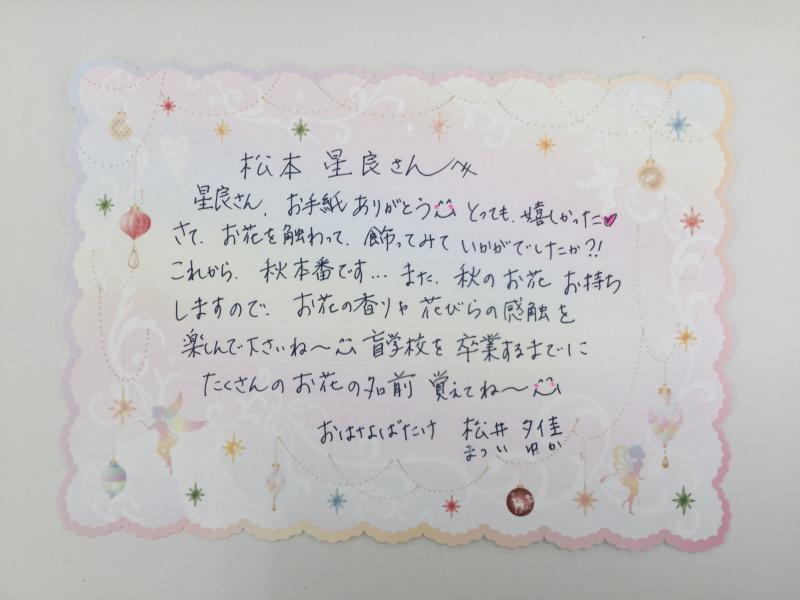 松本 星良さんへ
星良さん、お手紙ありがとう とっても、嬉しかった
さて、お花を触わって、飾ってみて いかがでしたか?!
これから、秋本番です… また、秋のお花 お持ち
しますので、お花の香りや 花びらの感触を
楽しんで下さいね〜 盲学校を 卒業するまでに
たくさんの お花の名前 覚えてね〜
おはなばたけ 松井 夕佳
まつい ゆか